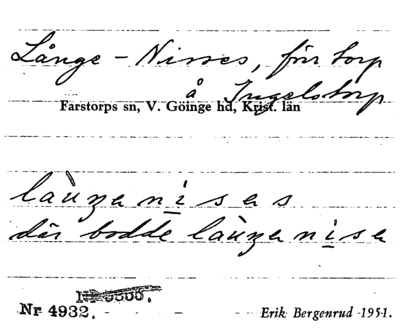 Långe-Nisses, förr torp
å Ingelstorp
Farstorps sn, V. Göinge hd, Krist. län
làuŋa nisas
där bodde làuŋa nisa
Nr 4932.
Erik Bergenrud 1951.